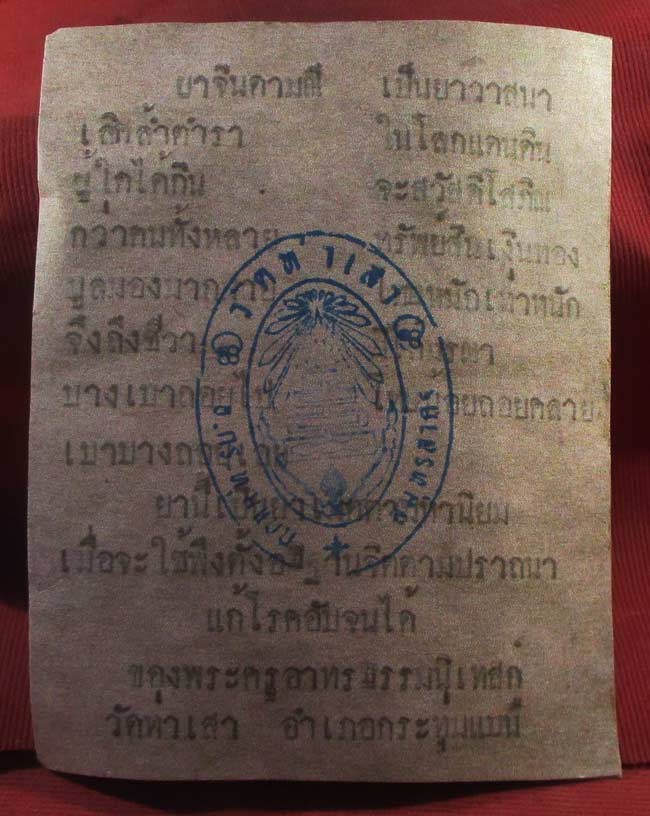 ยาจินดามณี เป็นยาวาสนา
เลิศล้ำตำรา ในโลกแดนดิน
ผู้ใดได้กิน จะสวัสดิโสภิณ
กว่าคนทั้งหลาย ทรัพย์สินเงินทอง
พูลมองมากมาย หนักเท่าหนัก
จึงถึงชีวา
บางเบาถอยไป ถอยคลาย
เบาบาง
ยานี้เป็นยา มหานิยม
เมื่อจะใช้พึงตั้งอธิฐานจิตตามปราถนา
แก้โรคอับจนได้
ของพระครูอาทรธรรมนิเทสก์
วัดท่าเสา อำเภอกระทุ่มแบน
วัดท่าเสา
อ.กระทุ่มแบน
สมุทรสาคร